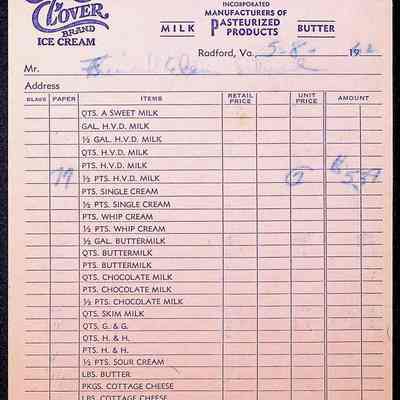 CLOVER
BRAND
ICE CREAM
INCORPORATED
MANUFACTURERS OF
MILK PASTEURIZED BUTTER
PRODUCTS
Radford, Va. 5-8- 1962
Mr.
Address
GLASS PAPER ITEMS RETAIL PRICE UNIT PRICE AMOUNT
QTS. A SWEET MILK
GAL. H.V.D. MILK
½ GAL. H.V.D. MILK
QTS. H.V.D. MILK
PTS. H.V.D. MILK
77 ½ PTS. H.V.D. MILK 7 $5.39
PTS. SINGLE CREAM
½ PTS. SINGLE CREAM
PTS. WHIP CREAM
½ PTS. WHIP CREAM
½ GAL. BUTTERMILK
QTS. BUTTERMILK
PTS. BUTTERMILK
QTS. CHOCOLATE MILK
PTS. CHOCOLATE MILK
½ PTS. CHOCOLATE MILK
QTS. SKIM MILK
QTS. G. & G.
QTS. H. & H.
PTS. H. & H.
½ PTS. SOUR CREAM
LBS. BUTTER
PKGS. COTTAGE CHEESE
LBS. COTTAGE CHEESE